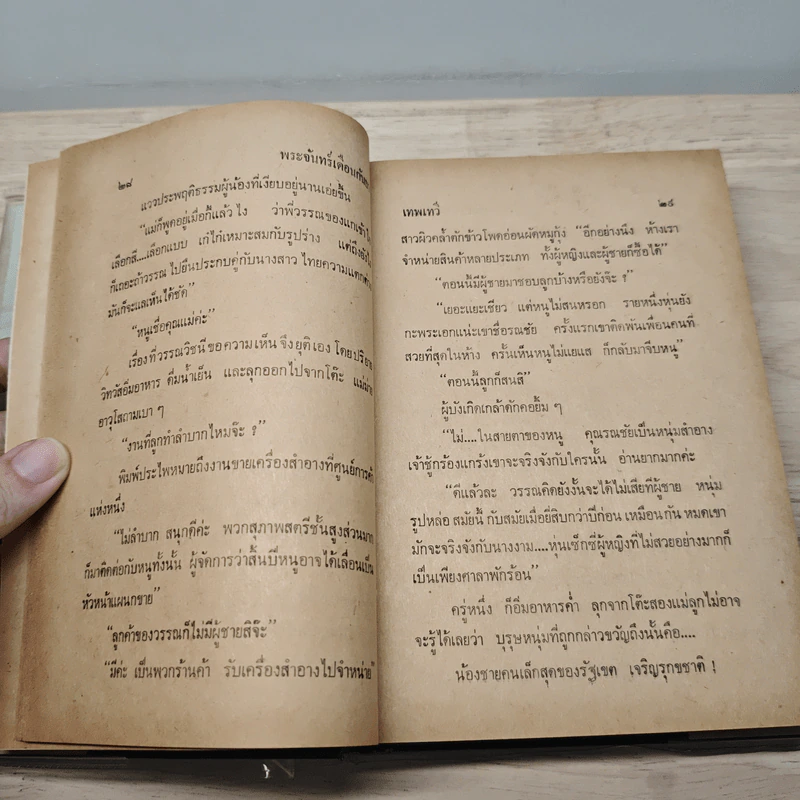 ๒๘ พระจันทร์เดือน
แววประพฤติธรรมผู้น้องที่เงียบอยู่นานเอ่ยขึ้น
“แม่ก็พูดอยู่เมื่อกี้แล้วไง ว่าพี่วรรณของแกเข้าใจ
เลือกสี....เลือกแบบ เก๋ไก๋เหมาะสมกับรูปร่าง แต่ถึงยังไง
ก็เถอะถ้าวรรณ ไปยืนประกบคู่กับนางสาว ไทยความแตกต่าง
มันก็จะแลเห็นได้ชัด”
“หนูเชื่อคุณแม่ค่ะ”
เรื่องที่วรรณวิชนีขอความเห็น จึงยุติเอง โดยปริยาย
วิทวัสอิ่มอาหาร ดื่มน้ำเย็น และลุกออกไปจากโต๊ะ แม่ม่าย
อาวุโสถามเบา ๆ
“งานที่ลูกทำลำบากไหมจ๊ะ ?
พิมพ์ประไพหมายถึงงานขายเครื่องสำอางที่ศูนย์การค้า
แห่งหนึ่ง
“ไม่ลำบาก สนุกดีค่ะ พวกสุภาพสตรีชั้นสูงส่วนมาก
ก็มาติดต่อกับหนูทั้งนั้น ผู้จัดการว่าสิ้นปีหนูอาจได้เลื่อนเป็น
หัวหน้าแผนกขาย”
“ลูกค้าของวรรณก็ไม่มีผู้ชายสิจ๊ะ”
“มีค่ะ เป็นพวกร้านค้า รับเครื่องสำอางไปจำหน่าย”
เทพเทวี ๒๙
สาวผิวคล้ำตักข้าวโพดอ่อนผัดหมูกุ้ง “อีกอย่างนึง ห้างเรา
จำหน่ายสินค้าหลายประเภท ทั้งผู้หญิงและผู้ชายก็ซื้อได้”
“ตอนนี้มีผู้ชายมาชอบลูกบ้างหรือยังจ๊ะ ?
“เยอะแยะเชียว แต่หนูไม่สนหรอก รายหนึ่งหุ่นยัง
กะพระเอกแน่ะเขาชื่อรณชัย ครั้งแรกเขาติดพันเพื่อนคนที่
สวยที่สุดในห้าง ครั้นเห็นหนูไม่แยแส ก็กลับมาจีบหนู”
“ตอนนี้ลูกก็สนสิ”
ผู้บังเกิดเกล้าดักคอยิ้ม ๆ
“ไม่....ในสายตาของหนู คุณรณชัยเป็นหนุ่มสำอาง
เจ้าชู้กรุ้งแกร้งเขาจะจริงจังกับใครนั้น อ่านยากมากค่ะ
“ดีแล้วละ วรรณคิดยังงั้นจะได้ไม่เสียทีผู้ชาย หนุ่ม
รูปหล่อ สมัยนี้ กับสมัยเมื่อยี่สิบกว่าปีก่อน เหมือนกัน หมดเขา
มักจะจริงจังกับนางงาม....หุ่นเซ็กซี่ผู้หญิงที่ไม่สวยอย่างมากก็
เป็นเพียงศาลาพักร้อน”
ครู่หนึ่ง ก็อิ่มอาหารค่ำ ลุกจากโต๊ะสองแม่ลูกไม่อาจ
จะรู้ได้เลยว่า บุรุษหนุ่มที่ถูกกล่าวขวัญถึงนั้นคือ....
น้องชายคนเล็กสุดของรัฐเขต เจริญรุกขชาติ !